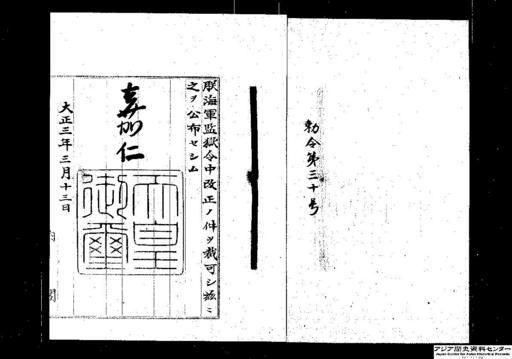 勅令第三十号
朕海軍監獄令中改正ノ件ヲ裁可シ茲ニ
之ヲ公布セシム
嘉仁
天皇
御璽
大正三年三月十三日
内閣
アジア歴史資料センター
Japan Center for Asian Historical Records